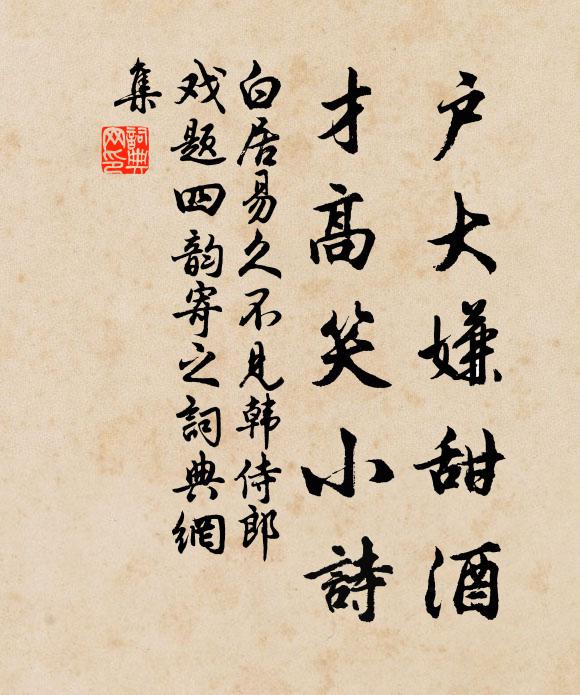 户大嫌甜酒
才高笑小詩
白居易久不見韩侍郎
戏题四韵寄之詞典網
集
詞典
网印